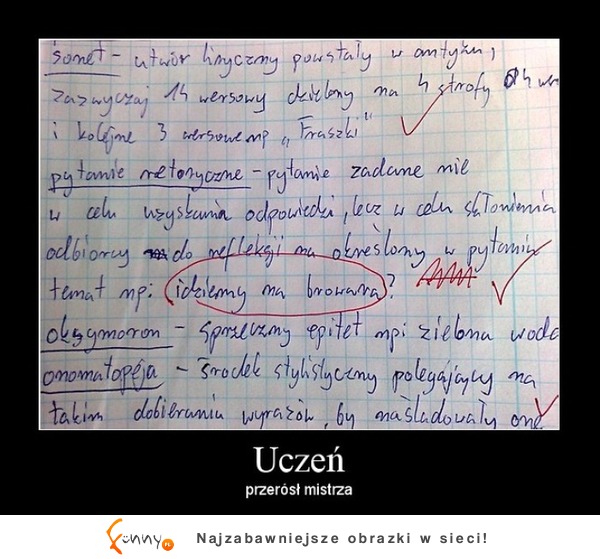 sonet - utwór liryczny powstały w antyku,
zazwyczaj 14 wersowy dzielony na 4 strofy 4
i kolejne 3 wersowe np „Fraszki"
pytanie retoryczne - pytanie zadane nie
w celu uzyskania odpowiedzi, lecz w celu skłonienia
odbiorcy do refleksji na określony w pytaniu
temat np: idziemy na browara?
oksymoron - sprzeczny epitet np: zielona woda
onomatopeja - środek stylistyczny polegający na
takim dobieraniu wyrazów, by naśladowały one
Uczeń
przerósł mistrza
Funny.pl Najzabawniejsze obrazki w sieci!